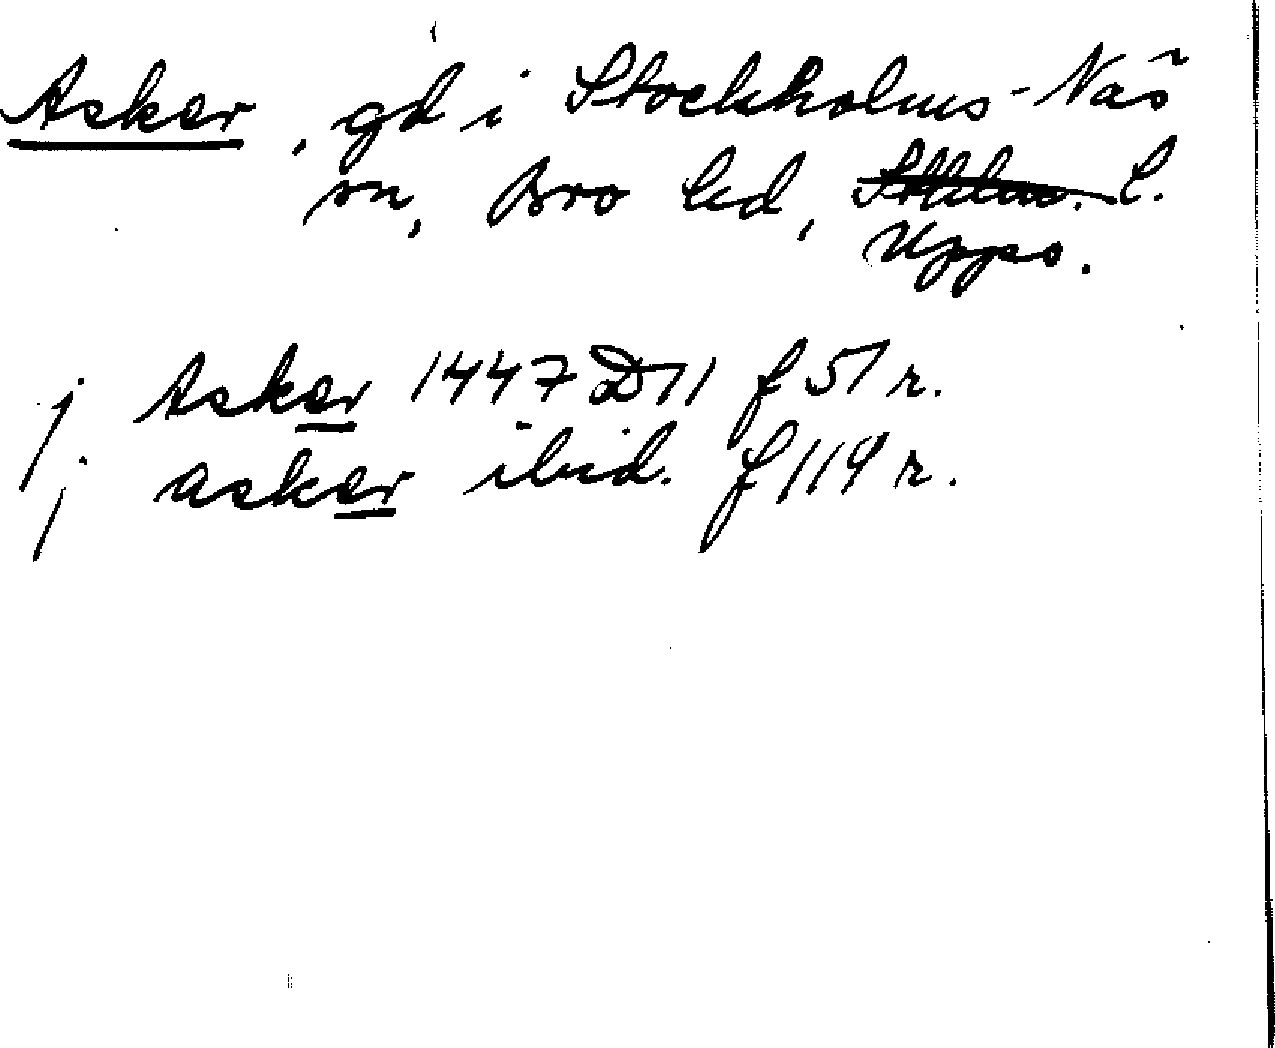 Asker, gd i Stockholms-Näs
sn, Bro hd, Sthlms. l.
Upps.
j Asker 1447 D11 f 51 r.
j asker ibid. f 119 r.